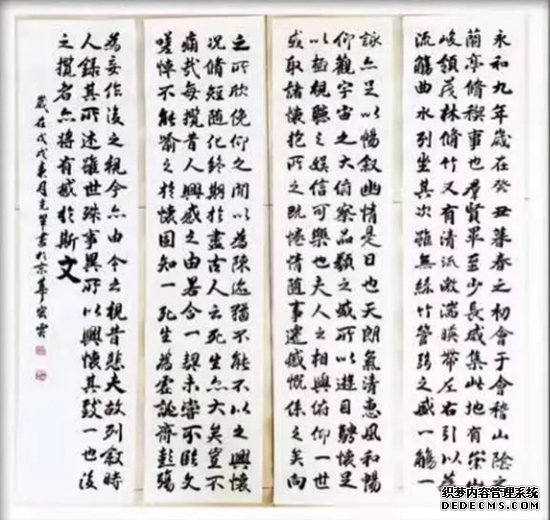 永和九年歲在癸丑暮春之初會于會稽山陰之
蘭亭脩稧事也羣賢畢至少長咸集此地有崇山
峻領茂林脩竹又有清流激湍暎帶左右引以為
流觴曲水列坐其次雖無絲竹管弦之盛一觴一
詠亦足以暢叙幽情是日也天朗氣清惠風和暢
仰觀宇宙之大俯察品類之盛所以遊目騁懷足
以極視聽之娛信可樂也夫人之相與俯仰一世
或取諸懷抱所之既惓情隨事遷感慨係之矣向
之所欣俛仰之閒以為陳迹猶不能不以之興懷
況脩短隨化終期於盡古人云死生亦大矣豈不
痛哉每攬昔人興感之由若合一契未嘗不臨文
嗟悼不能喻之於懷固知一死生為虛誕齊彭殤
為妄作後之視今亦由今之視昔悲夫故列叙時
人錄其所述雖世殊事異所以興懷其致一也後
之攬者亦將有感於斯文
歲在戊戌月書於京華
织梦内容管理系统
DEDECMS.COM